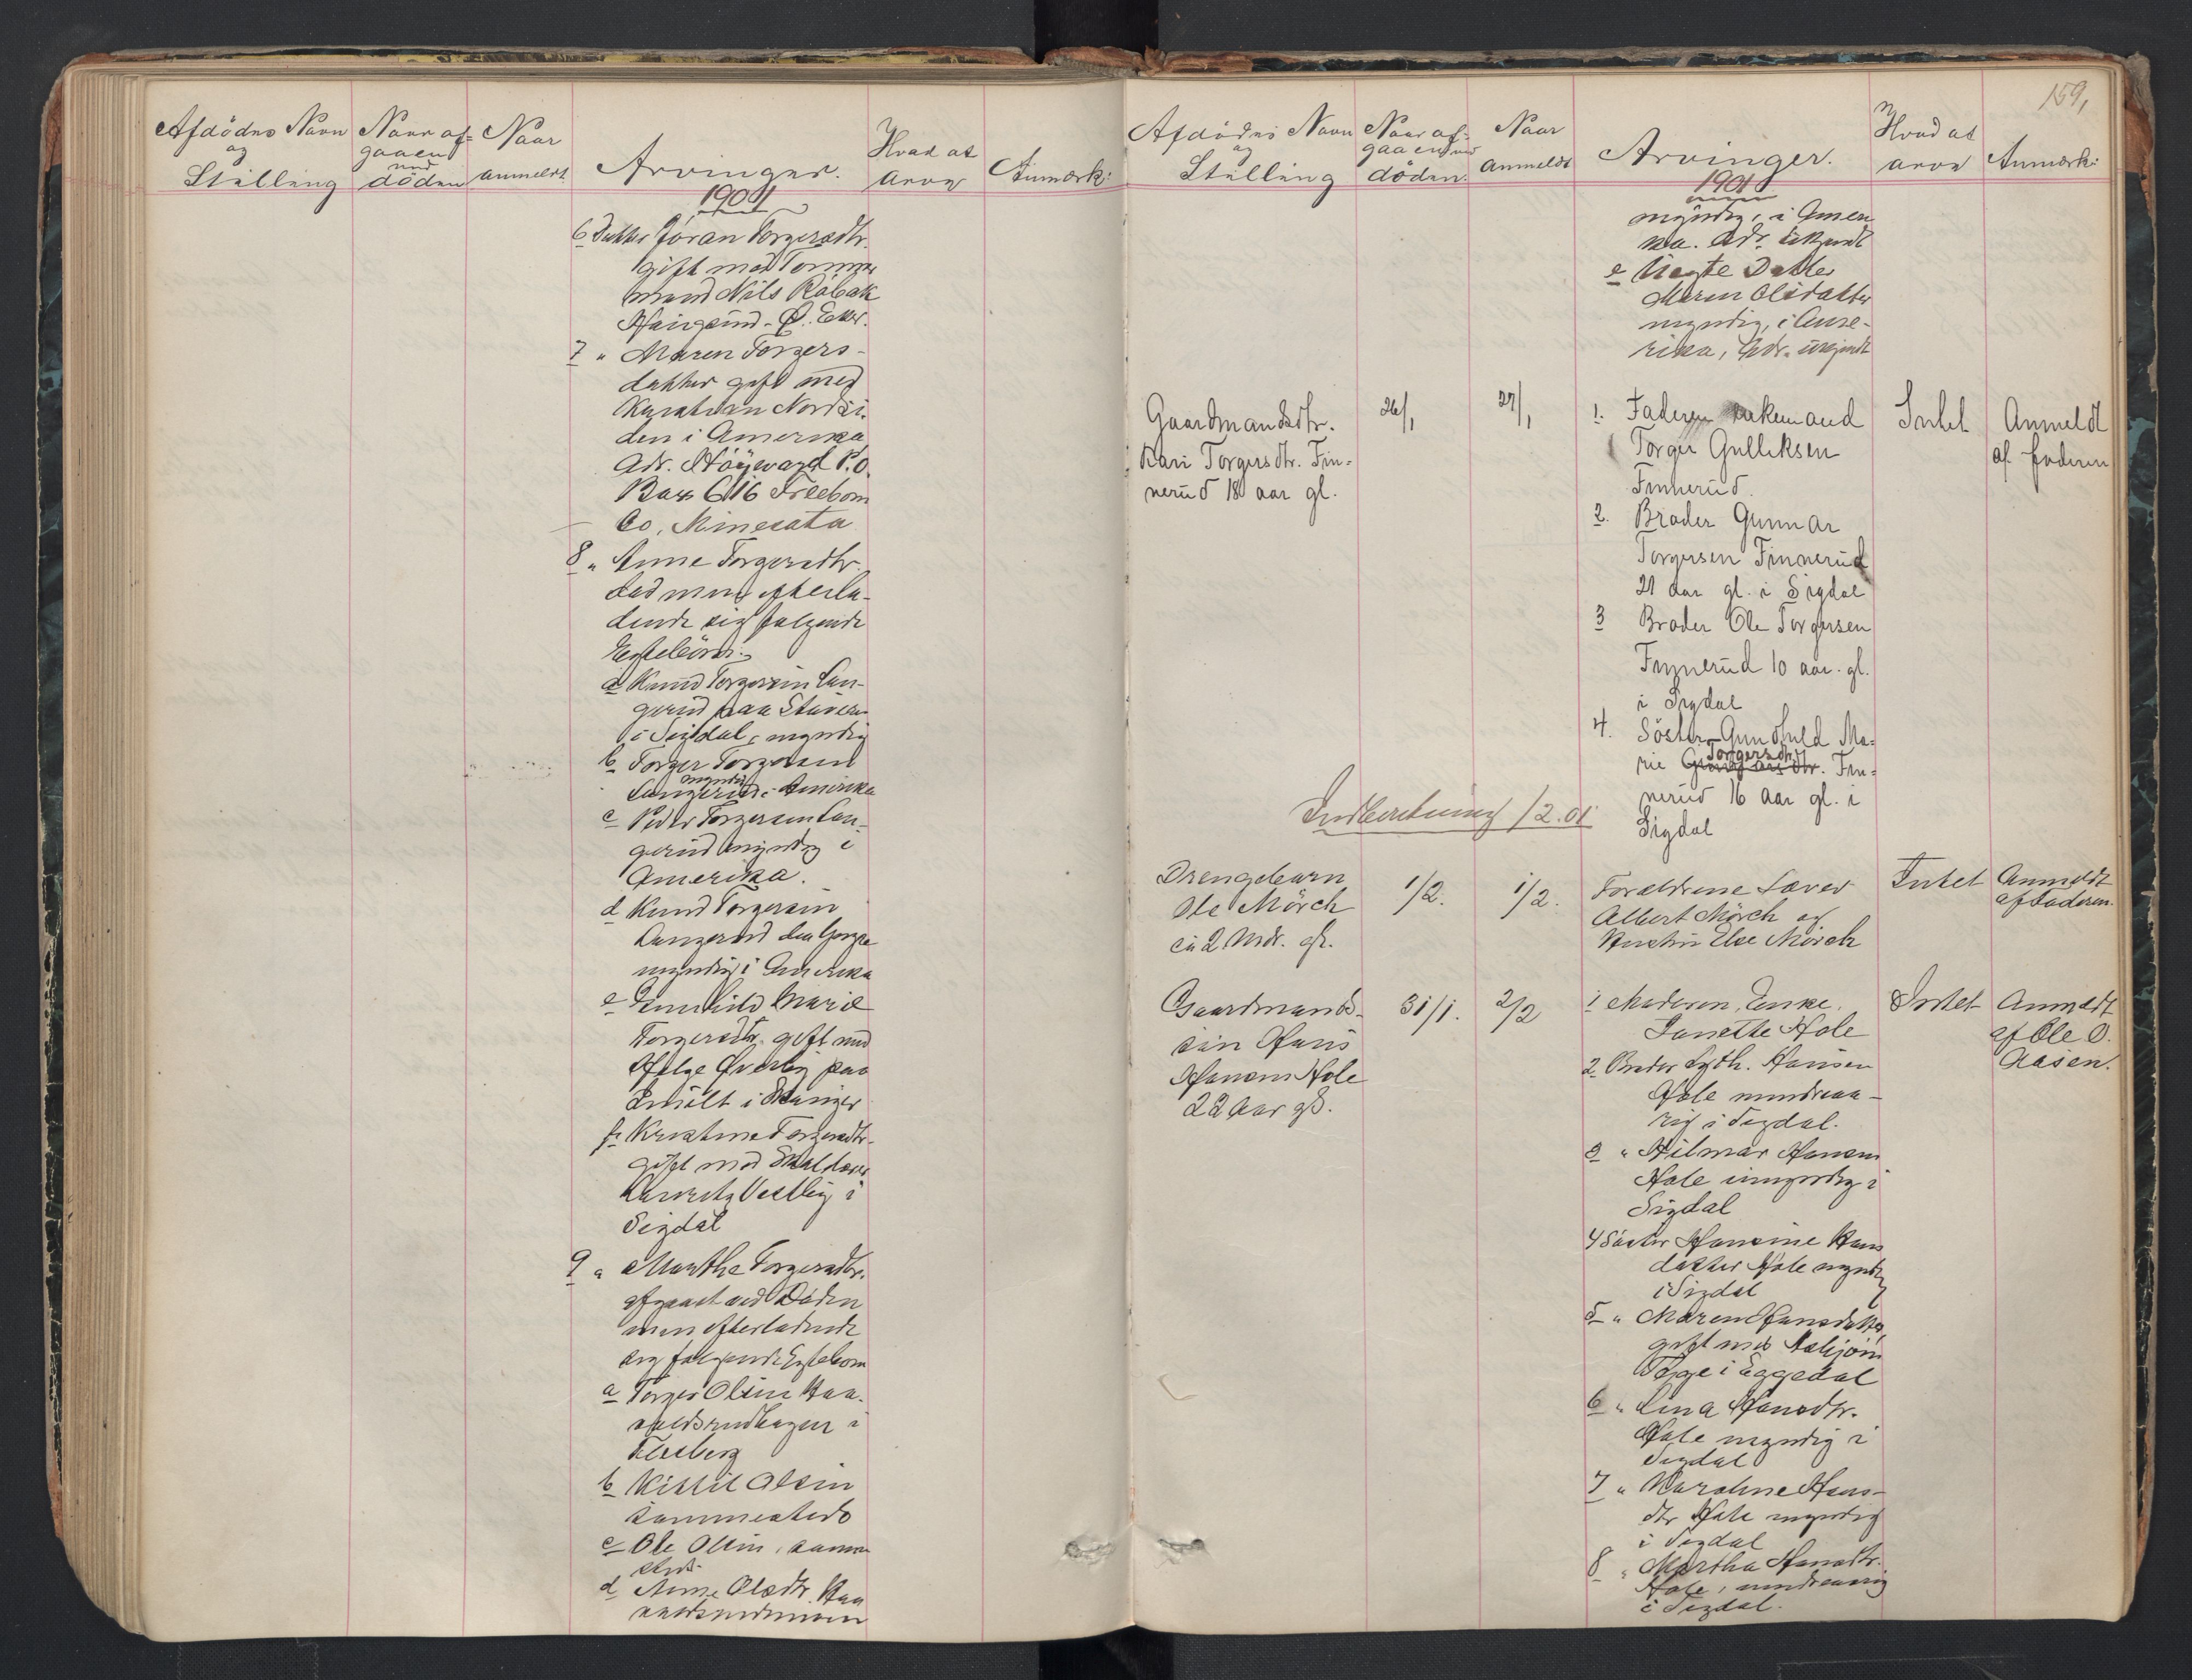 Afdödes Navn
og
Stilling
Naar af-
gaaen
ved
döden
Naar
anmeldt.
Arvinger.
Hvad at
arve
Anmærk:
1901
6 Datter Jöran Torgersdtr.
gift med Tømmer
mand Nils Råbak
Haugsund - Ø. Eker.
7 " Maren Torgers-
datter gift med
Kristian Nordli.
den i Amerika
Adr. P.O.
Box 616 Freeborn
Co, Minesota
8 " Anne Torgersdtr.
död men efterla-
dende sig følgende
Egtebörn:
a Knud Torgersen Lan-
gerud paa Staveren
i Sigdal, myndig
b Torger Torgersen
myndig
Langerud i Amerika
c Peder Torgersen Lan-
gerud myndig i
Amerika.
d Knud Torgersen
Langerud den yngre
myndig i Amerika
e Gunhild Marie
Torgersdtr. gift med
Helge Överby paa
i
f Kristine Torgersdtr.
gift med
Vestby i
Sigdal
9 " Marthe Torgersdtr.
afgaaet ved Döden
men efterladende
sig følgende Egtebörn
a Torger Olsen Haa-
valdsrudhagen i
Flesberg
b Kittil Olsen
sammesteds
c Ole Olsen, samme
steds
d Anne Olsdtr. Haa
159,
Afdödes Navn
og
Stilling
Naar af-
gaaen ved
döden.
Naar
anmeldt
Arvinger.
Hvad at
arve
Anmærk:
1901
myndig, i Ameri
ka. Adr. ukjendt
e Uegte Datter
Maren Olsdatter
myndig, i Ame-
rika, Adr. ukjendt
Gaardmandsdtr.
Kari Torgersdtr. Fin-
nerud 18 aar gl.
26/1
27/1
1. Faderen enkemand
Torger Gulliksen
Finnerud.
2. Broder Gunnar
Torgersen Finnerud
21 aar gl. i Sigdal
3 Broder Ole Torgersen
Finnerud 10 aar. gl.
i Sigdal
4. Söster Gunhild Ma-
Torgersdtr
rie dtr. Fin-
nerud 16 aar gl. i
Sigdal
Intet
Anmeldt
af faderen
Indberetning /2.01
Drengebarn
Ole Mörch
ca 2 Mdr. gl.
1/2.
1/2.
Forældrene Lærer
Albert Mörch og
Hustru Else Mörch
Intet
Anmeldt
af Faderen.
Gaardmands-
sön Hans
Hansen Hole
22 Aar gl.
31/1.
2/2
1 Moderen, Enke,
Janette Hole
2 Broder Hansen
Hole mindreaa-
rig i Sigdal.
3 " Hilmar Hansen
Hole umyndig i
Sigdal
4 Söster Hansine Hans
datter Hole myndig
i Sigdal
5 " Maren Hansdatter
gift med Asbjörn
Teige i Eggedal
6 " Lina Hansdtr.
Hole myndig i
Sigdal
7 " Karoline Hans-
dtr Hole myndig
i Sigdal
8 " Martha Hansdtr.
Hole, mindreaarig
i Sigdal.
Intet
Anmeldt
af Ole O.
Aasen.